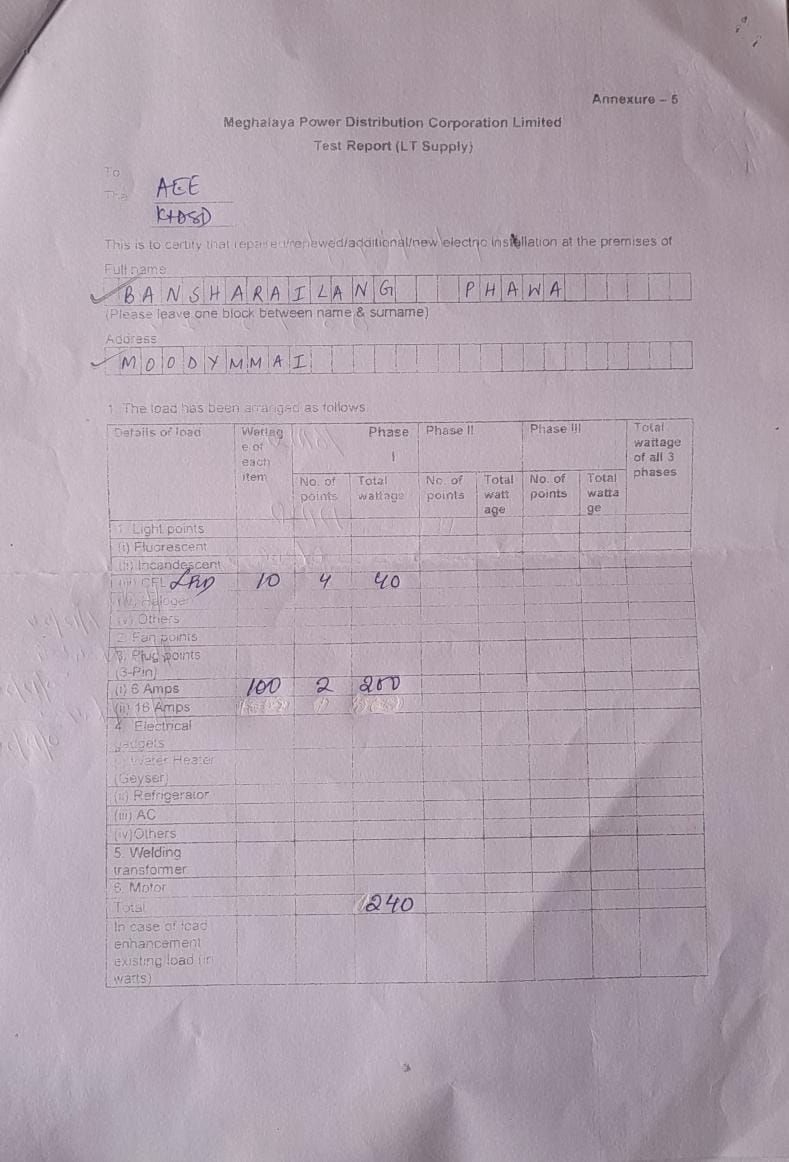 Annexure – 5
Meghalaya Power Distribution Corporation Limited
Test Report (LT Supply)
To
The
AEE
KHDSD
This is to certify that repaired/renewed/additional/new electric installation at the premises of
Full name
BANSHARAILANG PHAWA
(Please leave one block between name & surname)
Address
MOODYMMAI
1. The load has been arranged as follows
Details of load Wattag e of each item Phase I Phase II Phase III Total wattage of all 3 phases
No. of points Total wattage No. of points Total watt age No. of points Total watta ge
1. Light points
(i) Fluorescent
(ii) Incandescent
(iii) CFL LED 10 4 40
(iv) Halogen
(v) Others
2. Fan points
3. Plug points
(3-Pin)
(i) 6 Amps 100 2 200
(ii) 16 Amps
4. Electrical
gadgets
Water Heater
(Geyser)
(ii) Refrigerator
(iii) AC
(iv)Others
5. Welding
transformer
6. Motor
Total 240
In case of load
enhancement
existing load (in
watts)